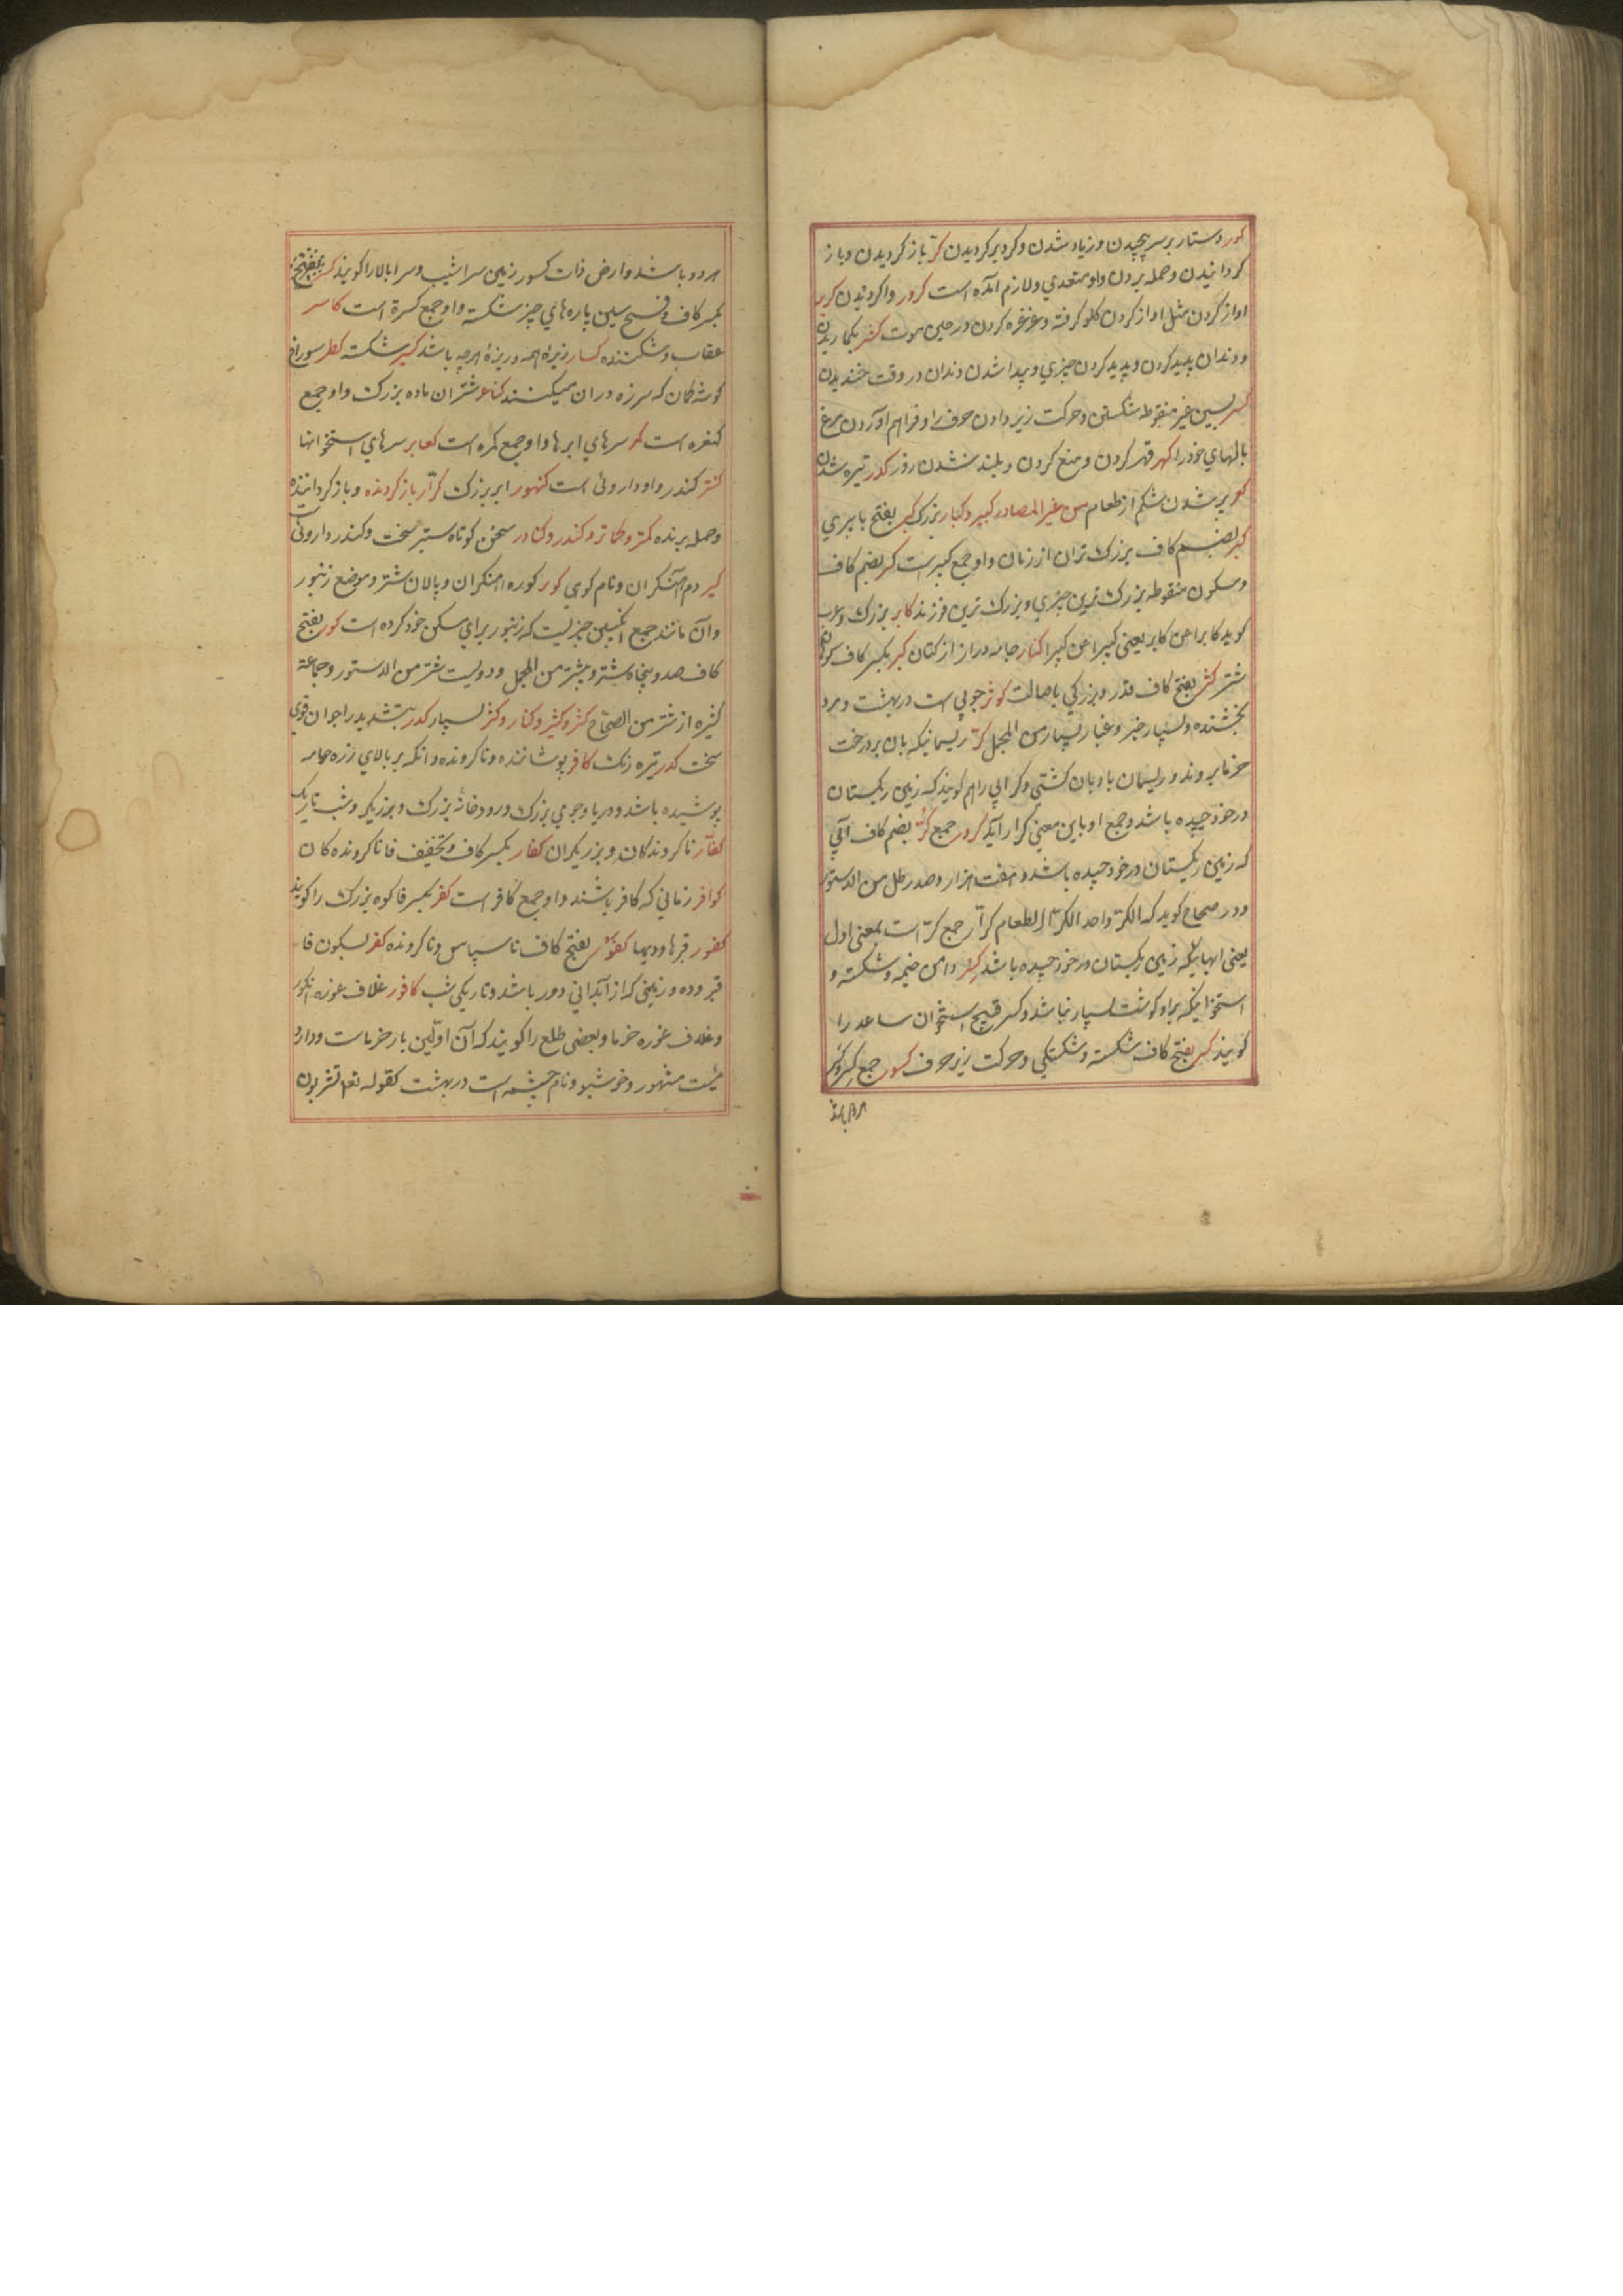 کور دستار بر سر پیچیدن و زیاد شدن و کرد بر کردیدن کرّ باز کردیدن و باز
کردانیدن و حمله بردن و او متعدي و لازم آمده است کرور واکردیدن کریر
اواز کردن مثل اواز کردن کلو کرفته و غرغره کردن در حین موت کشر
و دندان پدید کردن و پدید کردن چیزي و پیدا شدن دندان در وقت خندیدن
کسر بسین غیر منقوطه شکستن و حرکت زیر دادن حرف را و فراهم آوردن مرغ
بالهاي خود را کهر قهر کردن و منع کردن و بلند شدن روز کدر تیره شدن
کعر پر شدن شکم از طعام من غیر المصادر کبیر و کبار بزرک کبر بفتح با پیري
کبر بضم کاف بزرک تران از زنان و او جمع کبر است کبر بضم کاف
و سکون منقوطه بزرک ترین چیزي و بزرک ترین فرزند کابر بزرک و عرب
کوید کابرا عن کابر یعني کبیرا عن کبیر اکبار جامه دراز از کتان کبر بکسر کاف
شتر کثر بفتح کاف قدر و بزرکي باصالت کوثر جویي است در بهشت و مرد
بخشنده و بسیار خیر و غبار بسیار من المجمل کرّ ریسمانیکه بان بر درخت
خرما بروند و ریسمان بادبان کشتي و کر آبي را هم کویند که زمین ریکستان
در خود چیده باشد و جمع او باین معني کرار آید کرور جمع کرّ بضم کاف آبي
که زمین ریکستان در خود چیده باشد و هفت هزار و صد رطل من الدستور
و در صحاح کوید که الکرّ واحد الکرّ الطعام کرار جمع کرّ است بمعني اول
یعني ابهائیکه زمین ریکستان در خود چیده باشد کسر دامن خیمه و شکسته و
استخوانیکه بر او کوشت بسیار نباشد و کسر قبیح استخوان ساعد را
کویند کسر بفتح کاف شکسته و شکستکي و حرکت زیر حرف کسور جمع کسر و کسر
هر دو باشد
هر دو باشد و ارض ذات کسور زمین سراشیب و سرابالا را کویند کسر
بکسر کاف و فتح سین پاره هاي چیز شکسته و او جمع کسرة است کاسر
عقاب و شکننده کسار زیزه همه و ریزهٔ هرچه باشد کسیر شکسته کظر سوراخ
کوشه کمان که سر زه در ان میکنند کناعر شتران ماده بزرک و او جمع
کنعره است کمر سرهاي ابرها و او جمع کمره است کعابر سرهاي استخوانها
کنتر کندر و او داروئي است کنهور ابر بزرک کرّار باز کردنده و باز کرداننده
و حمله برنده کمتر و کماتر و کندر و کنادر سخن کوتاه ستبر سخت و کندر داروئي
کیر دم آهنکران و نام کوهي کور کوره آهنکران و پالان شتر و موضع زنبور
و آن مانند جمع انکبین چیزیست که زنبور براي مسکن خود کرده است کور بفتح
کاف صد و پنجاه شتر و بیشتر من المجمل و دویست شتر من الدستور و جماعة
کثیره از شتر من الصحاح کثر و کثیر و کثار و کثر بسیار کدر بتشدید را جوان قوي
سخت کدر تیره رنک کافر پوشاننده و ناکرونده و انکه بر بالاي زره جامه
پوشیده باشد و دریا و جوي بزرک و رودخانهٔ بزرک و بزریکر و شب تاریک
کفّار ناکروندکان و بزریکران کفار بکسر کاف و تخفیف فا ناکرونده کان
کوافر زماني که کافر باشند و او جمع کافر است کفر بکسر فا کوه بزرک را کویند
کفور قبرها و دیهها کفور بفتح کاف ناسپاس و ناکرونده کفر بسکون فا
قبر و ده و زمیني که از آبداني دور باشد و تاریکي شب کافور غلاف غوره انکور
و غلاف غوره خرما و بعضي طلع را کویند که آن اوّلین بار خرماست و دارو
ئیست مشهور و خوشبو و نام چشمه است در بهشت کقوله تعا تشربون